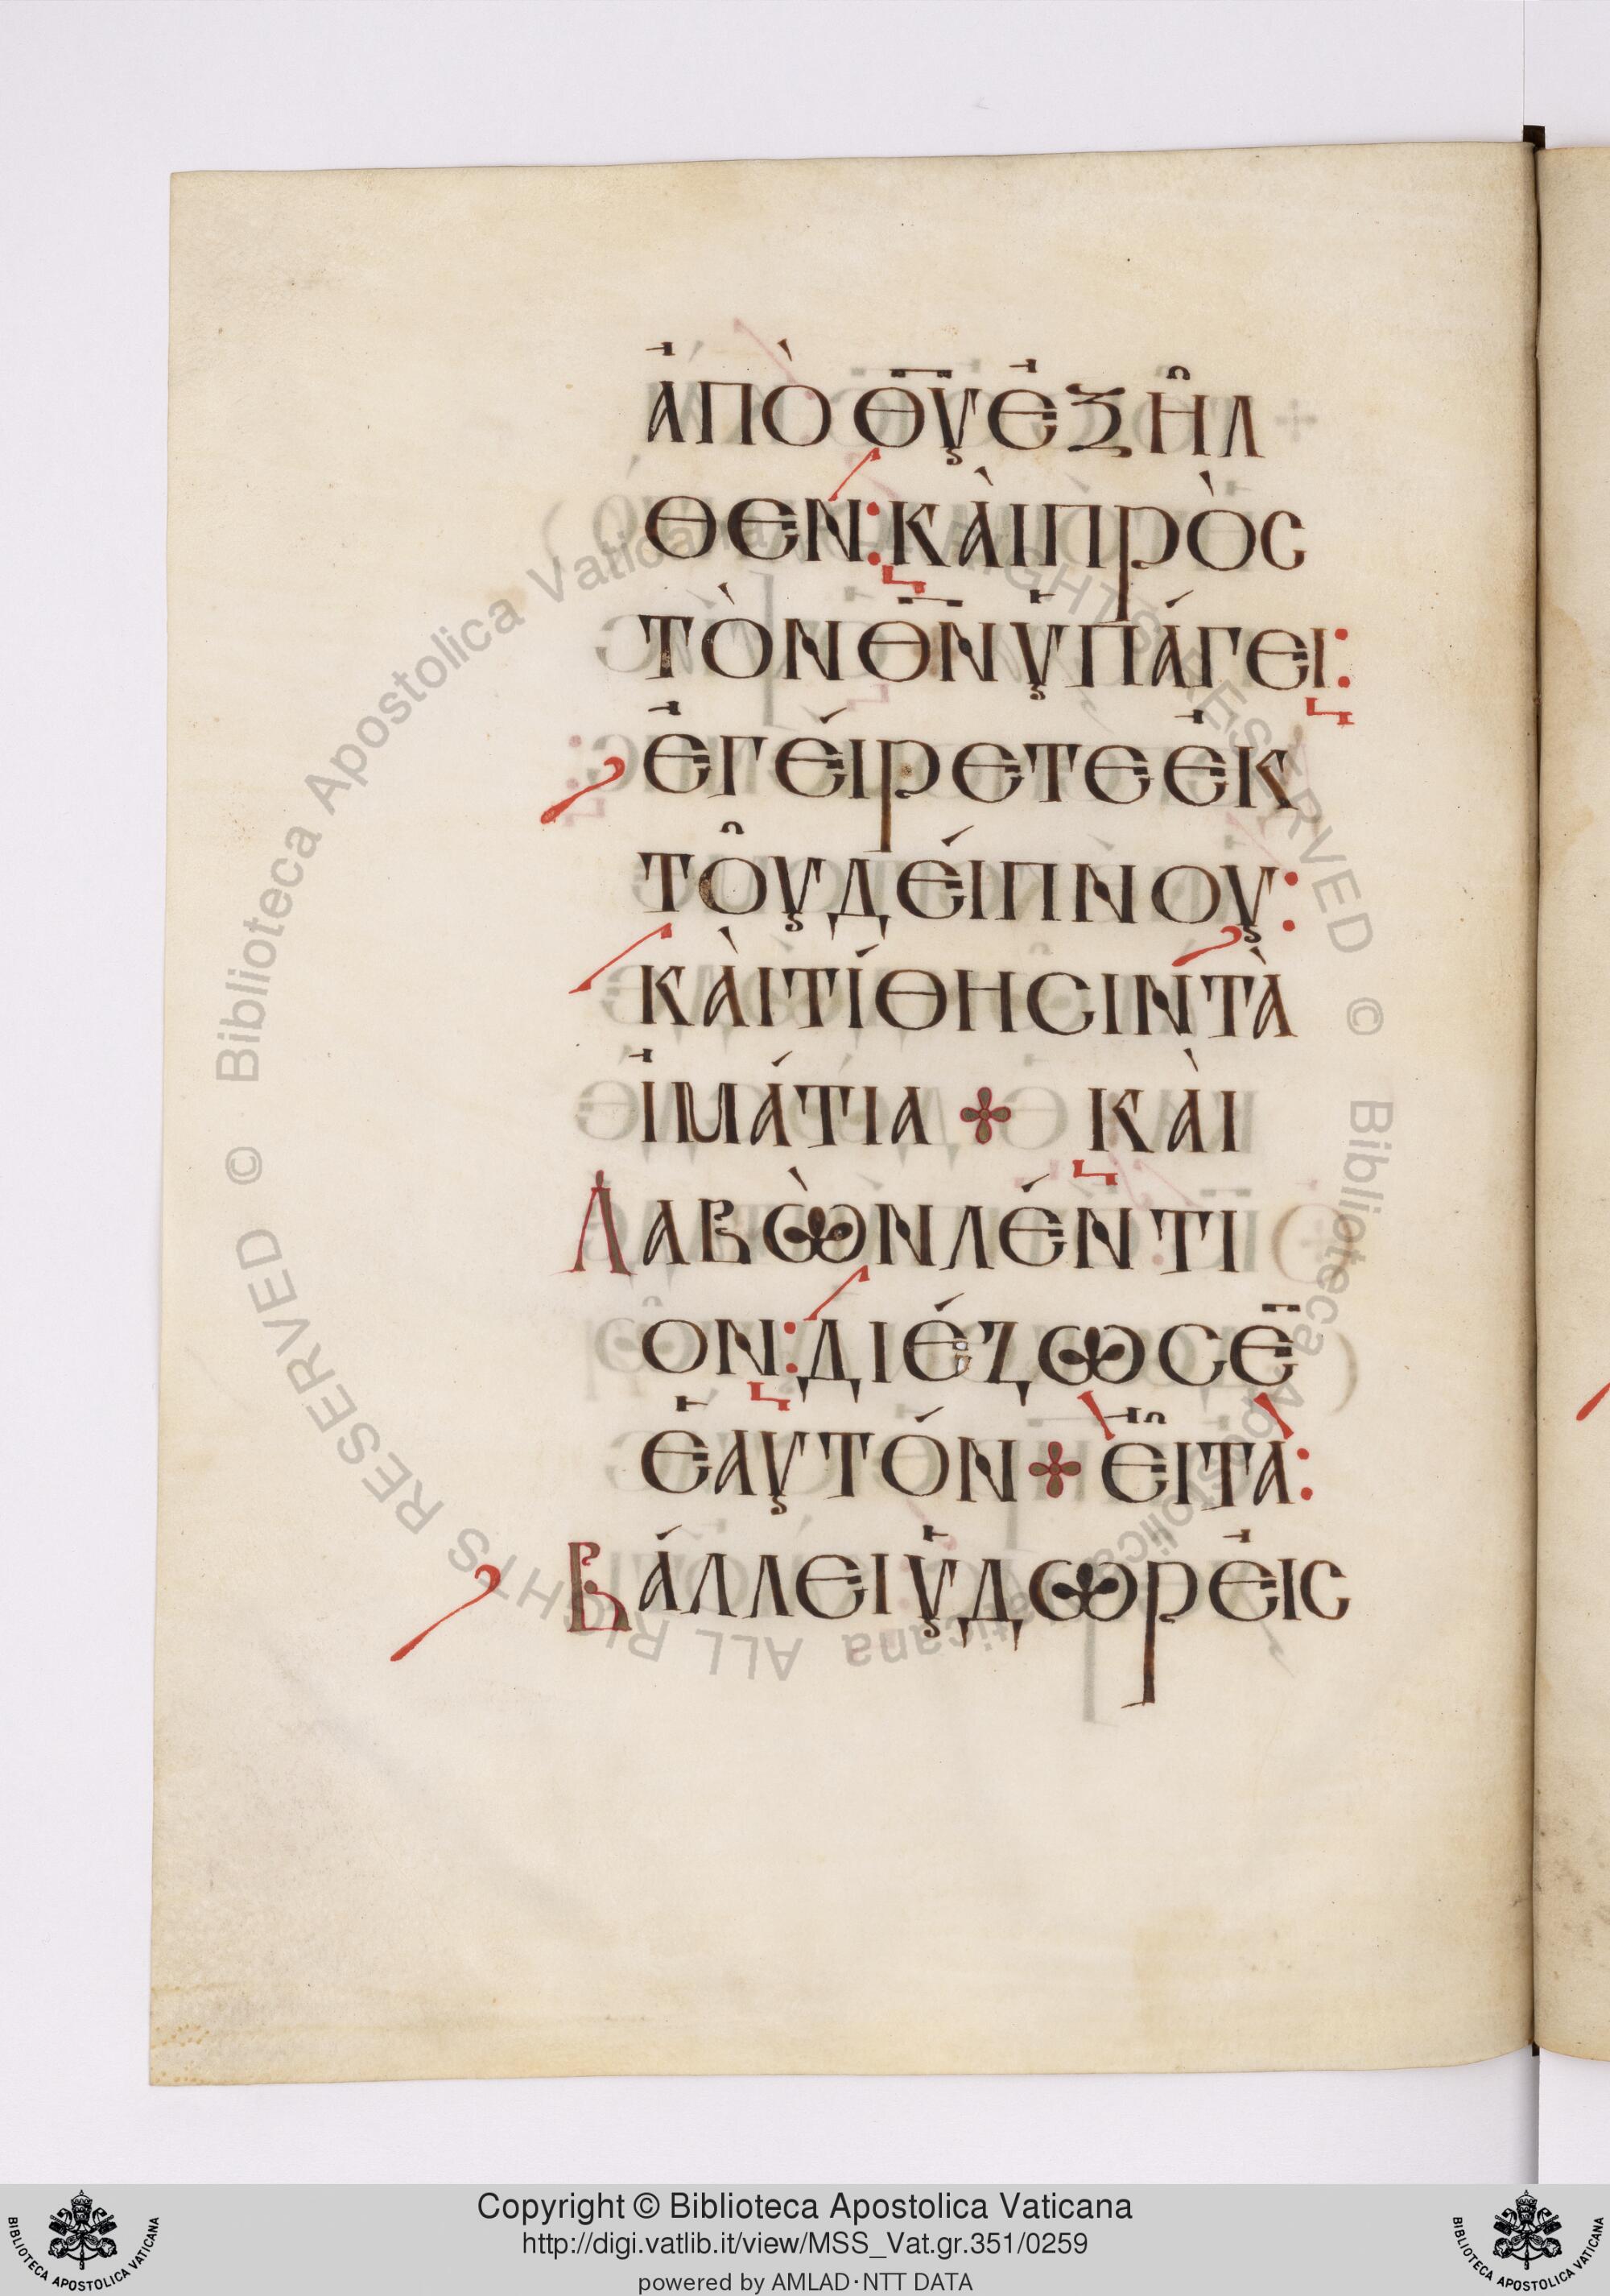 ἀπὸ θ̅υ̅ ἐξῆλ
θεν: κὰι πρὸς
τὸν θ̅ν̅ ὑπάγει:
ἐγέιρετε ἐκ
τõυ δέιπνου:
κὰι τίθησιν τὰ
ἱμάτια ✣ κὰι
Λαβὼν λέντι
ον: διέζωσε̅
ἑαυτόν ✣ εἶτα:
Βάλλει ὕδωρ ἐις
© Biblioteca Apostolica Vaticana ALL RIGHTS RESERVED © Biblioteca Apostolica Vaticana ALL RIGHTS RESERVED
BIBLIOTECA APOSTOLICA VATICANA
Copyright © Biblioteca Apostolica Vaticana
http://digi.vatlib.it/view/MSS_Vat.gr.351/0259
powered by AMLAD·NTT DATA
BIBLIOTECA APOSTOLICA VATICANA